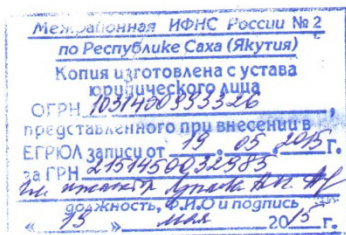 Межрайонная ИФНС России № 2
по Республике Саха (Якутия)
Копия изготовлена с устава
юридического лица
ОГРН 1031400933326,
представленного при внесении в
ЕГРЮЛ записи от 19.05.2015 г.
за ГРН 2151450032983
должность, Ф.И.О и подпись
« 19 » мая 2015 г.